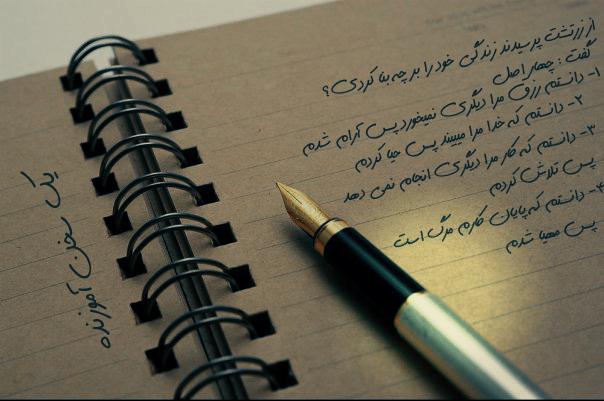 از زرتشت پرسیدند زندگی خود را بر چه بنا کردی؟
گفت: چهار اصل
۱- دانستم رزق مرا دیگری نمیخورد پس آرام شدم
۲- دانستم که خدا مرا میبیند پس حیا کردم
۳- دانستم که کار مرا دیگری انجام نمی دهد
پس تلاش کردم
۴- دانستم که پایان کارم مرگ است
پس مهیا شدم
یک سخن آموزنده